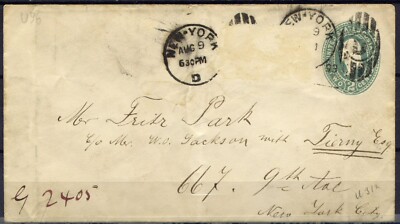 U%
NEW-YORK
AUG 9
630PM
D
NEW-YORK
9
1
99
2
Mr Fritz Park
C/o Mr. W.S. Jackson with Tierny Esq
667. 9th Ave
New York City
G 2405